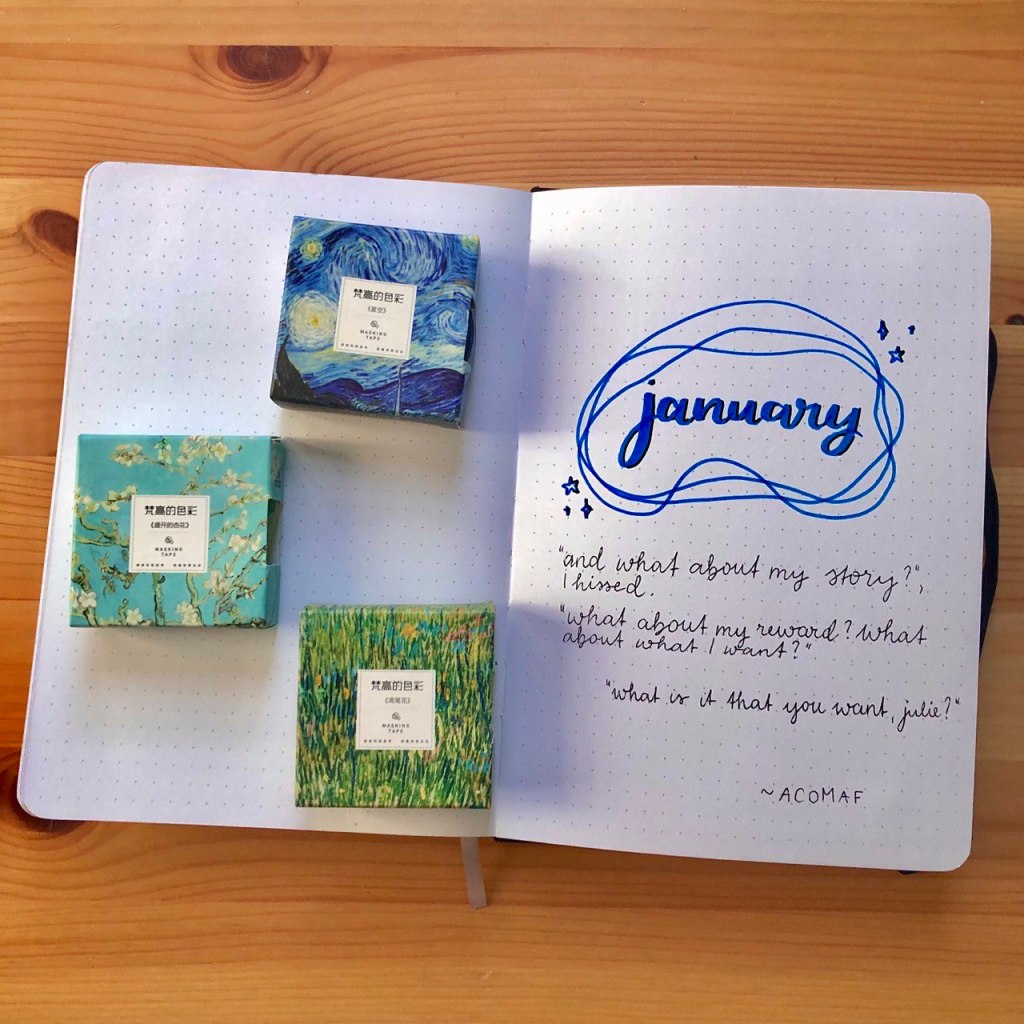 梵高的色彩
《星空》
MASKING
TAPE
梵高的色彩
《盛开的杏花》
MASKING
TAPE
梵高的色彩
《鸢尾花》
MASKING
TAPE
january
"and what about my story?",
I hissed.
"what about my reward? What
about what I want?"
"what is it that you want, julie?"
~ACOMAF